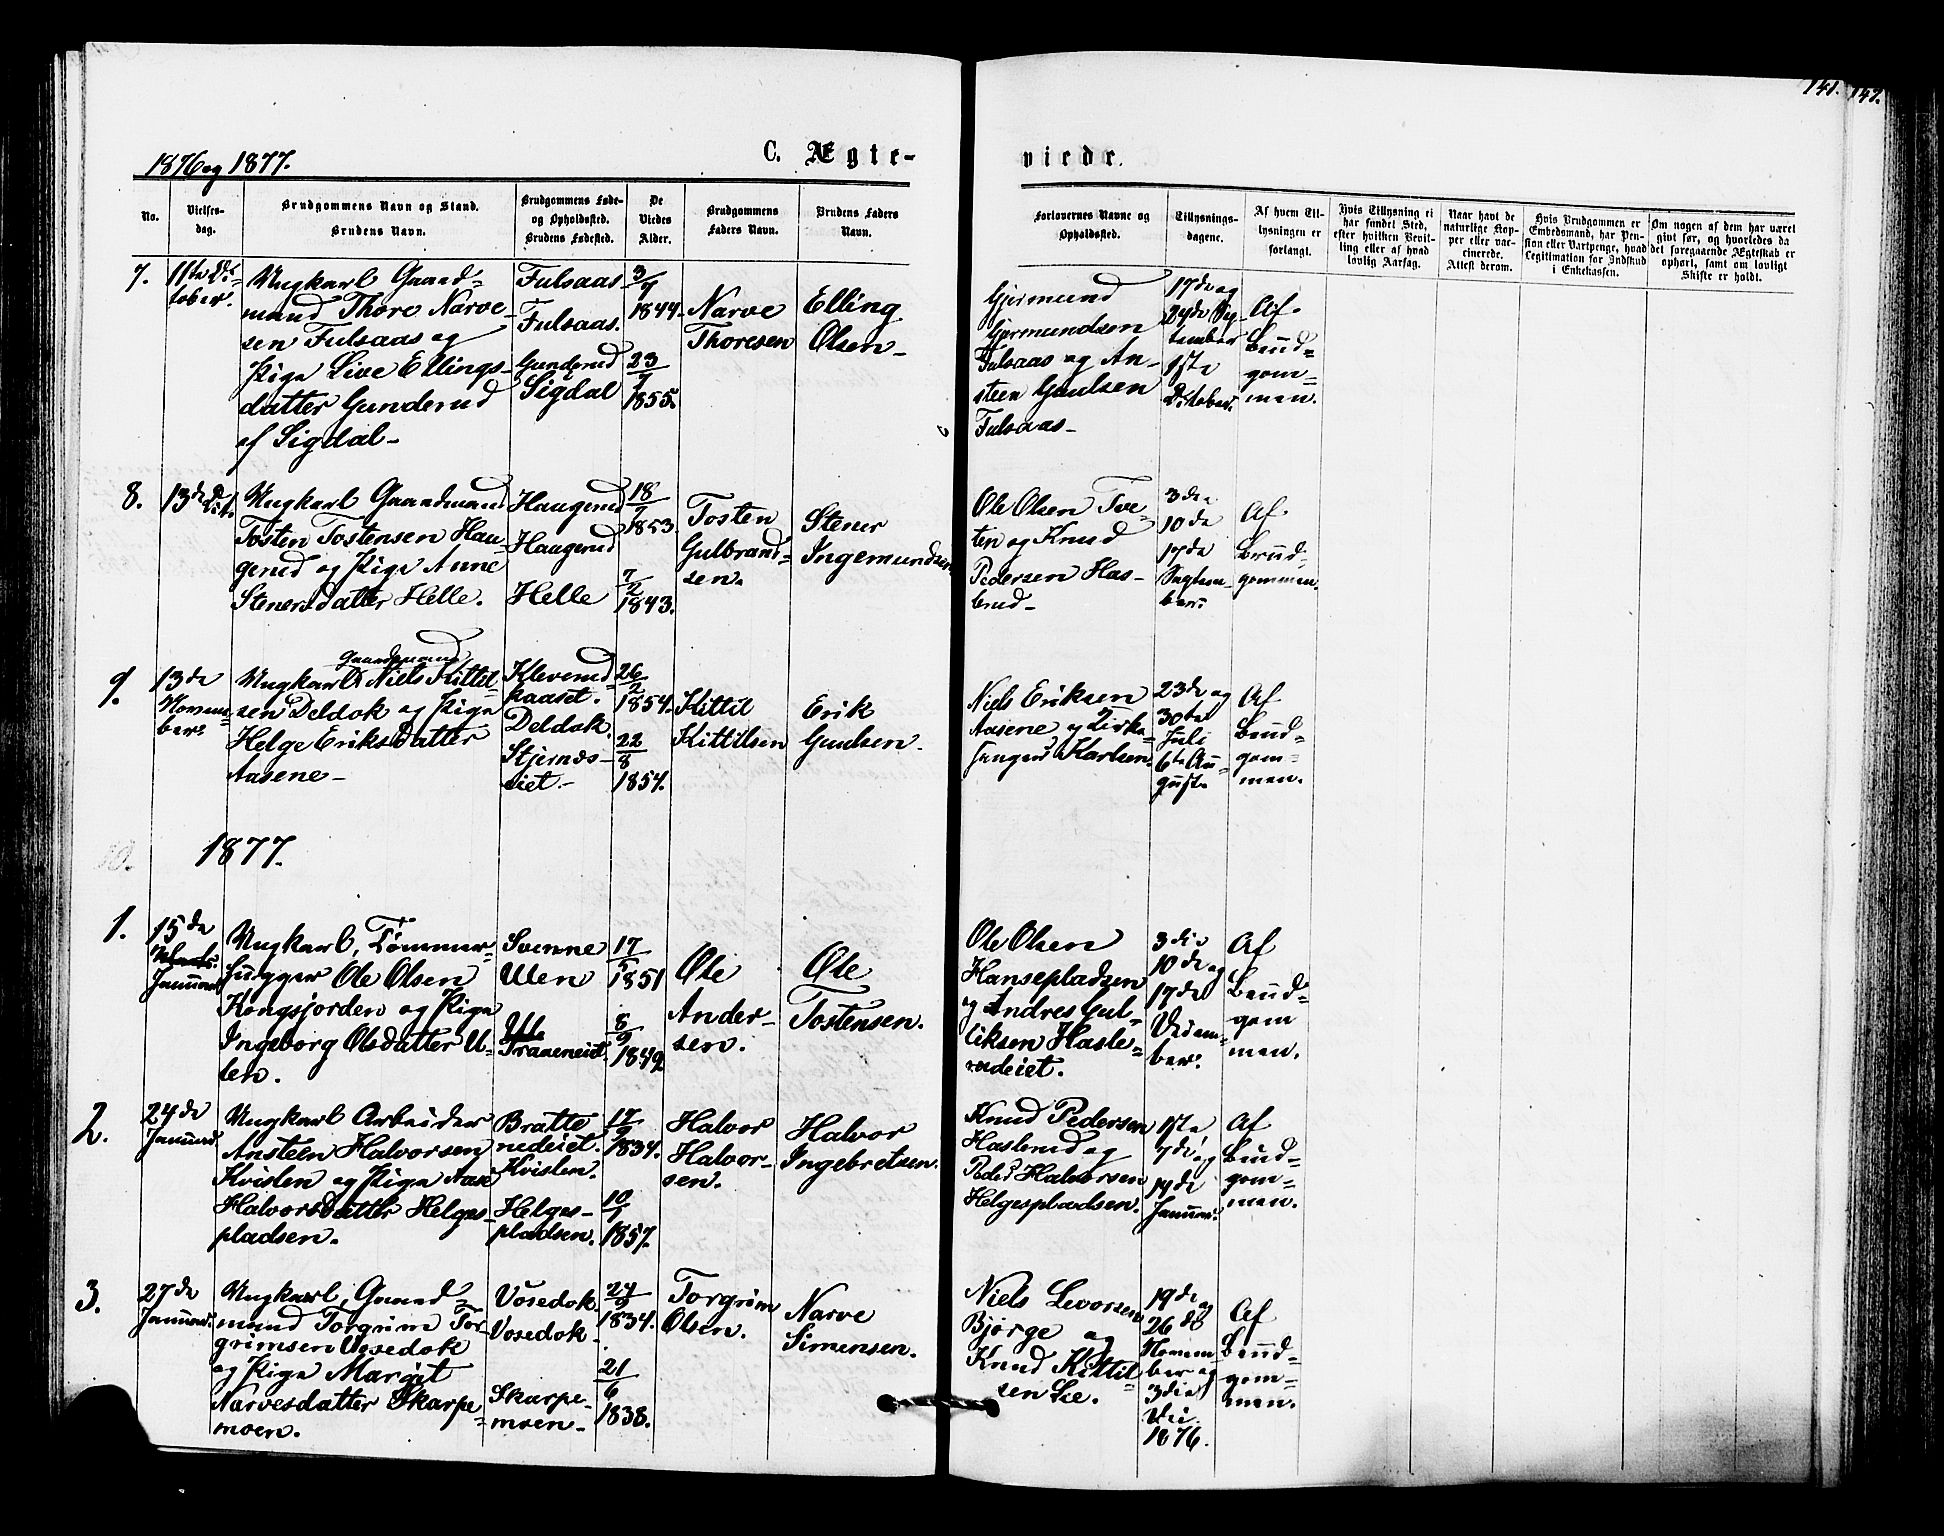 141. 147.
1876 og 1877.
C. Ægte-
viede.
No.
Vielses-
dag.
Brudgommens Navn og Stand.
Brudens Navn.
Brudgommens Føde-
og Opholdssted.
Brudens Fødested.
De
Viedes
Alder.
Brudgommens
Faders Navn.
Brudens Faders
Navn.
Forlovernes Navne og
Opholdssted.
Tillysnings-
dagene.
Af hvem Til-
lysningen er
forlangt.
Hvis Tillysning ei
har fundet Sted,
efter hvilken Bevil-
ling eller af hvad
lovlig Aarsag.
Naar havt de
naturlige Kop-
per eller vac-
cinerede.
Attest derom.
Hvis Brudgommen er
Embedsmand, har Pen-
sion eller Vartpenge, hvad
Legitimation for Indskud
i Enkekassen.
Om nogen af dem har været
givt før, og hvorledes da
det foregaaende Ægteskab er
ophørt, samt om lovligt
Skifte er holdt.
7.
11te Ok-
tober.
Ungkarl Gaard-
mand Thore Narve-
sen Fulsaas og
Pige Live Ellings-
datter Gunderud
af Sigdal-
Fulsaas
Fulsaas.
Gunderud
Sigdal
3/7
1844.
23/7
1855.
Narve
Thoresen
Elling
Olsen-
Gjermund
Gjermundsen
Fulsaas og An-
steen Gaulsen
Fulsaas-
17de og
24de Sep-
tember
1ste
Oktober.
Af
Brud-
gom-
men.
8.
13de Okt.
Ungkarl Gaardmand
Tosten Tostensen Hau-
gerud og Pige Anne
Stenersdatter Helle.
Haugerud
Haugerud
Helle
18/7
1853.
7/2
1843.
Tosten
Gulbrand-
sen.
Stener
Ingemundsen
Ole Olsen Tve-
ten og Knud
Pedersen Has-
lerud-
3die
10de
17de
Septem-
ber.
Af
Brud-
gommen.
9.
13de
Novem-
ber.
Gaardmand
Ungkarl Niels Kittil-
sen Deldok og Pige
Helge Eriksdatter
Aasene-
Kleverud-
kaaset.
Deldok.
Stjernes-
eiet.-
26/2
1854.
22/8
1854.
Kittil
Kittilsen
Erik
Gaulsen.
Niels Eriksen
Aasene og Kirke-
sanger Karlsen.
23de og
30te
Juli
6te Au-
gust.
Af
Brud-
gom-
men.
10.
1877.
1.
15de
Januar
Ungkarl, Tømmer-
hugger Ole Olsen
Kongsjorden og Pige
Ingeborg Olsdatter U-
len.
Svenne
Ulen
Traaeneiet.
17/5
1851
8/9
1849.
Ole
Ander-
sen.
Ole
Tostensen.
Ole Olsen
Hansepladsen
og Andres Gul-
liksen Hasle-
rudeiet.
3die
10de og
17de
Decem-
ber.
Af
Brud-
gom
men.
2.
24de
Januar.
Ungkarl Arbeider
Ansteen Halvorsen
Kvislen og Pige Aase
Halvorsdatter Helges-
pladsen.
Bratte
rudeiet.
Kvislen.
Helges-
pladsen.
17/9
1834.
10/1
1857.
Halvor
Halvor-
sen.
Halvor
Ingebretsen.
Knud Pedersen
Haslerud og
Peder Halvorsen
Helgespladsen.
1ste
7de og
14de
Januar.
Af
Brud-
gom-
men.
3.
27de
Januar.
Ungkarl, Gaard-
mand Torgrim Tor-
grimsen Vosedok
og Pige Margit
Narvesdatter Skarpe-
moen.
Vosedok
Vosedok-
Skarpe-
moen-
24/9
1834.
21/6
1838.
Torgrim
Olsen.
Narve
Simensen.
Niels Levorsen
Bjørge og
Knud Kittil-
sen Lie.
19de og
26de
Novem-
ber og
3die
Dec.
1876.
Af
Brud-
gom-
men.